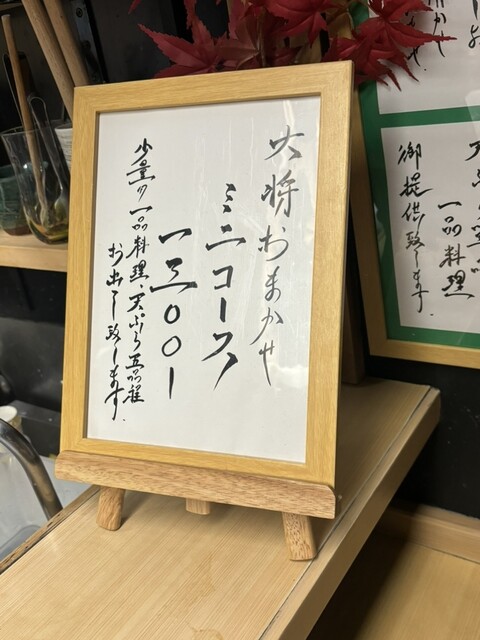 大将おまかせ
ミニコース
一三〇〇ー
少量の一品料理、天ぷら五品程
お出し致します。
一品料理
御提供致します。